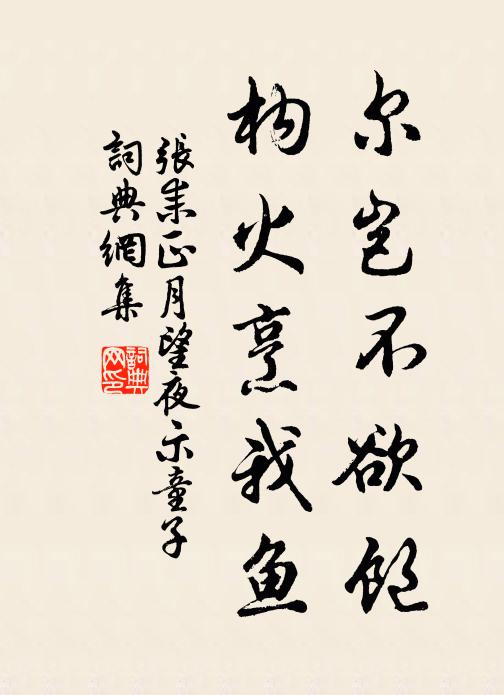 尔岂不欲饱
构火烹我鱼
張耒正月望夜示童子
詞典網集
詞典网印